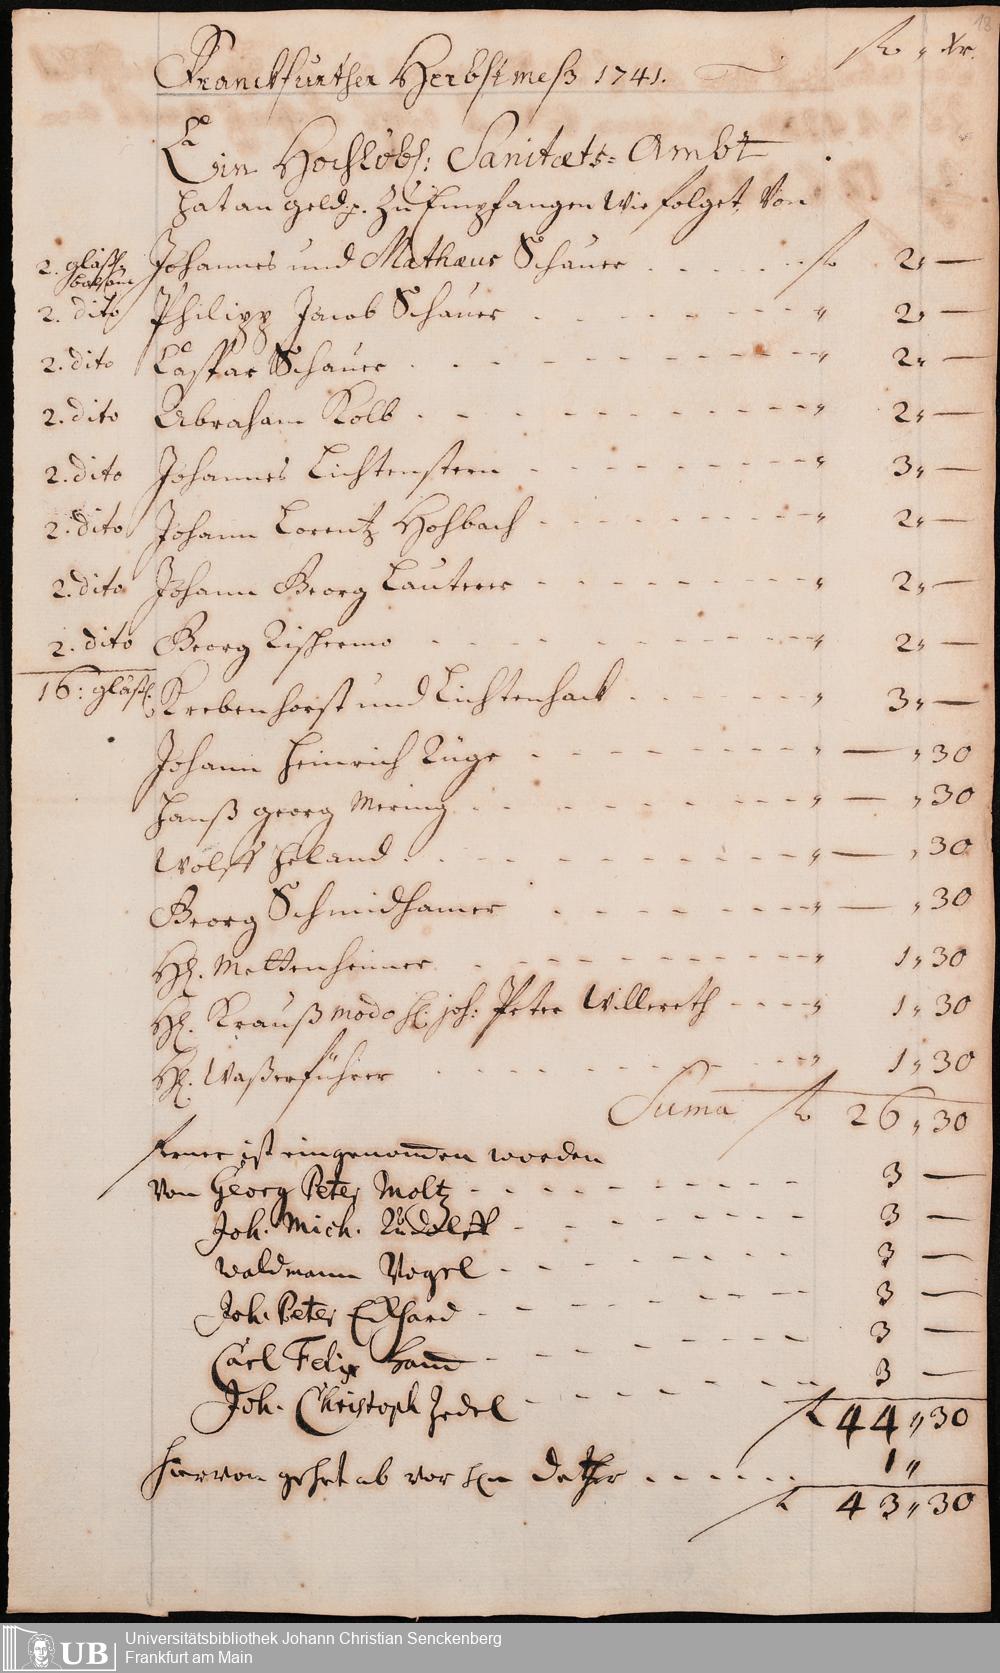 18
fl „ Xr.
Franckfurther Herbstmeß 1741.
Ein Hochlöbl: Sanitæts=Ambt
hat an geld p. zu Empfangen wie folget, Von
2. gläßl. balsam Johannes und Mathæus Schauer . . . . . . fl 2„ —
2. dito Philipp Jacob Schauer - - - - - - „ 2„ —
2. dito Caspar Schauer . - - - - - - - „ 2„ —
2. dito Abraham Kolb . - - - - - - - „ 2„ —
2. dito Johannes Lichtenstern - - - - - - - „ 3„ —
2. dito Johann Lorentz Hohbach - - - - - - - „ 2„ —
2. dito Johann Georg Lauterer - - - - - - - „ 2„ —
2. dito Georg - - - - - - - „ 2„ —
16: gläßl. Krebenhorst und Lichtenhack . - - - - - „ 3„ —
Johann Heinrich Rüge - - - - - - - „ — „ 30
Hanß Georg Mering - - - - - - - „ — „ 30
Wolff Heland . - - - - - - - „ — „ 30
Georg Schmidhamer - - - - - - „ — „ 30
Hl. Mettenheimer - - - - - - - „ 1„ 30
Hl. Krauß modo Hl. Joh: Peter Willereth - - - - „ 1„ 30
Hl. Waßerführer - - - - - - - „ 1„ 30
Suma fl 26„ 30
Ferner ist eingenommen worden
Von Georg Peter Moltz - - - - - - - - 3 —
Joh. Mich. Rudolff - - - - - - - 3 —
Waldmann Vogel - - - - - - - 3 —
Joh. Peter Eckhard - - - - - - - 3 —
Carl Felix Hamm - - - - - - - 3 —
Joh. Christoph Zedel - - - - - - - 3 —
fl 44„30
Hiervon gehet ab vor Hln Dether . . . . . . 1„
fl 43„30
UB
Universitätsbibliothek Johann Christian Senckenberg
Frankfurt am Main